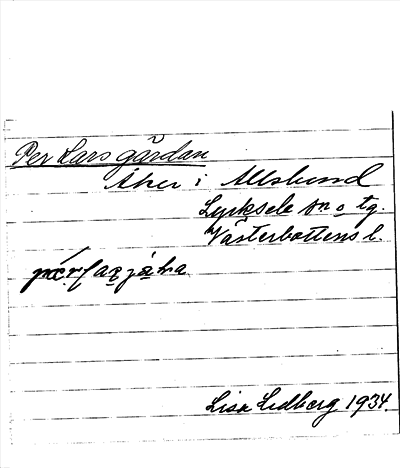 Per Lars gärdan
Åker i Alslund
Lycksele sn o tg.
Västerbottens l.
Lisa Lidberg 1934.